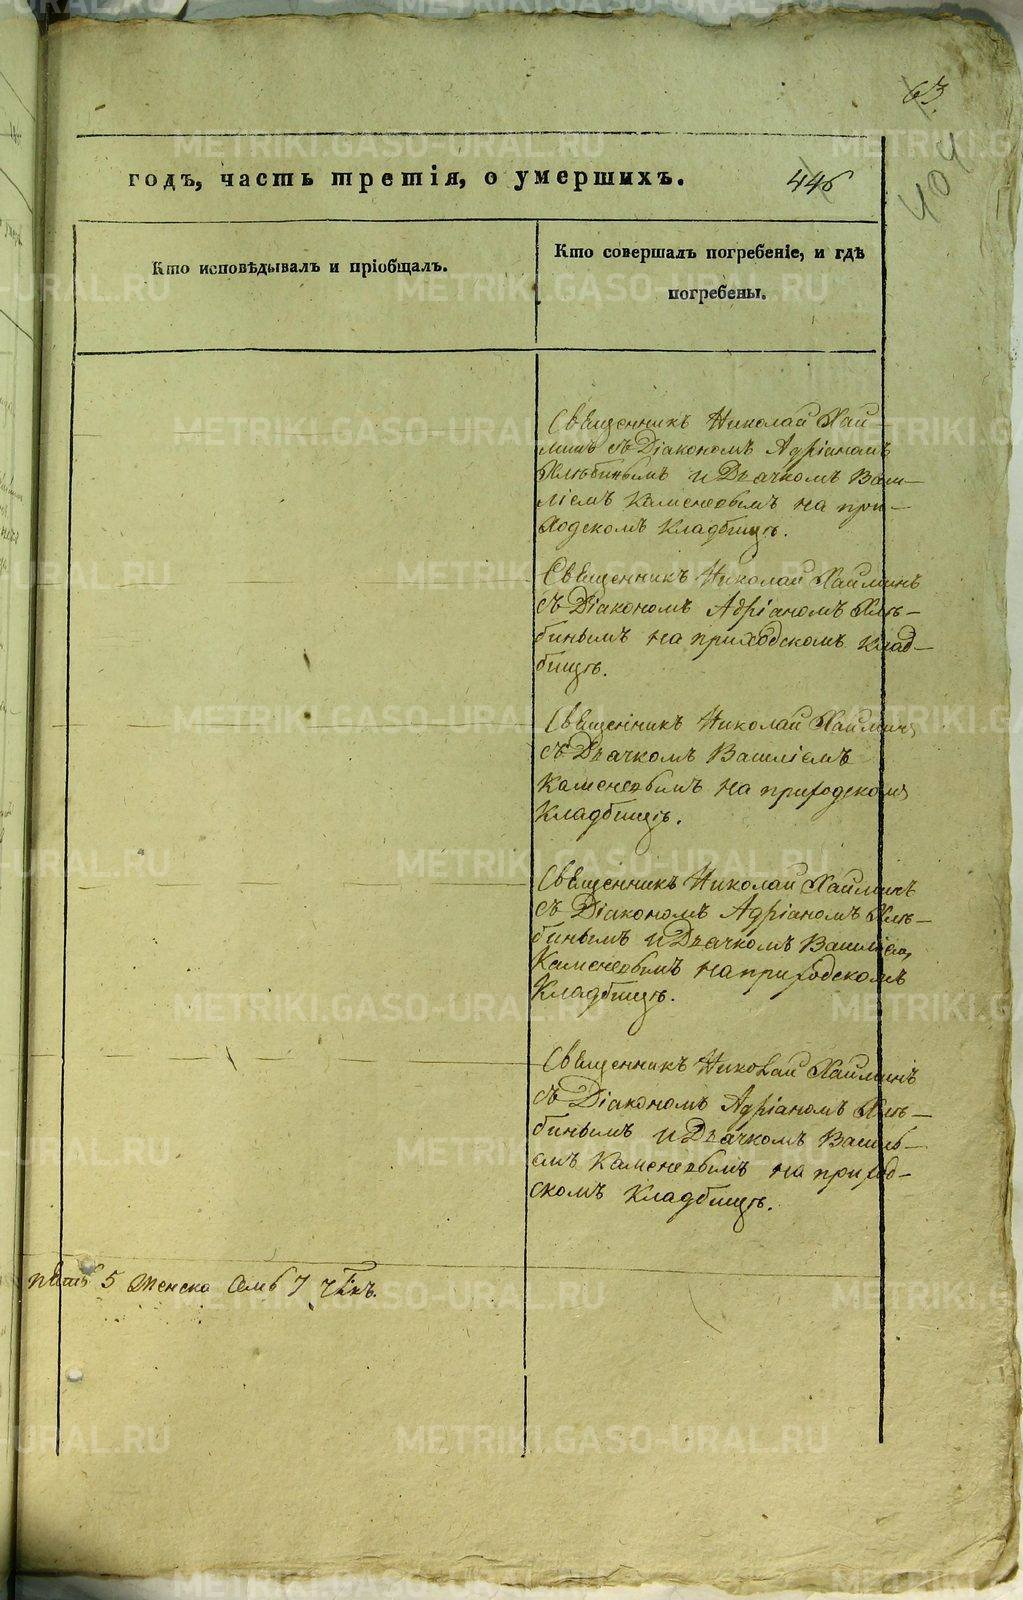 63.
404
годъ, часть третія, о умершихъ.
446
Кто исповѣдывалъ и пріобщалъ.
Кто совершалъ погребеніе, и гдѣ
погребены.
Священникъ Николай Хай-
минъ съ Діакономъ Адріаномъ
Хлюбинымъ и Дьячкомъ Васи-
ліемъ Каменевымъ на при-
ходскомъ Кладбищѣ.
Священникъ Николай Хайминъ
съ Діакономъ Адріаномъ Хлю-
бинымъ на приходскомъ Клад-
бищѣ.
Священникъ Николай Хайминъ
съ Дьячкомъ Василіемъ
Каменевымъ на приходскомъ
Кладбищѣ.
Священникъ Николай Хайминъ
съ Діакономъ Адріаномъ Хлю-
бинымъ и Дьячкомъ Василіем
Каменевымъ на приходскомъ
Кладбищѣ.
Священникъ Николай Хайминъ
съ Діакономъ Адріаномъ Хлю-
бинымъ и Дьячкомъ Василь-
емъ Каменевымъ на приход-
скомъ Кладбищѣ.
пять 5 женска семь 7
METRIKI.GASO-URAL.RU